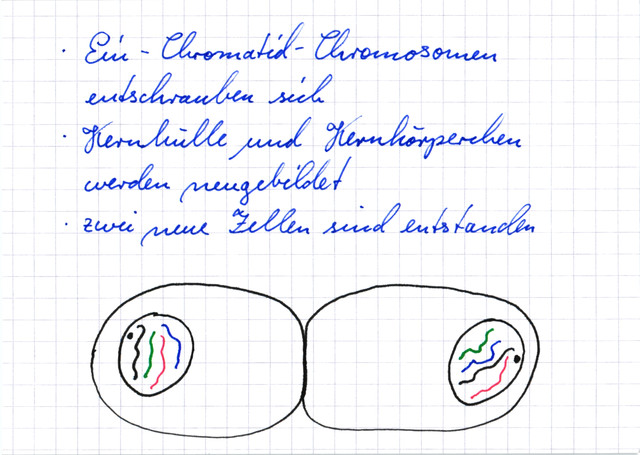 · Ein-Chromatid-Chromosomen
entschrauben sich
· Kernhülle und Kernkörperchen
werden neugebildet
· zwei neue Zellen sind entstanden